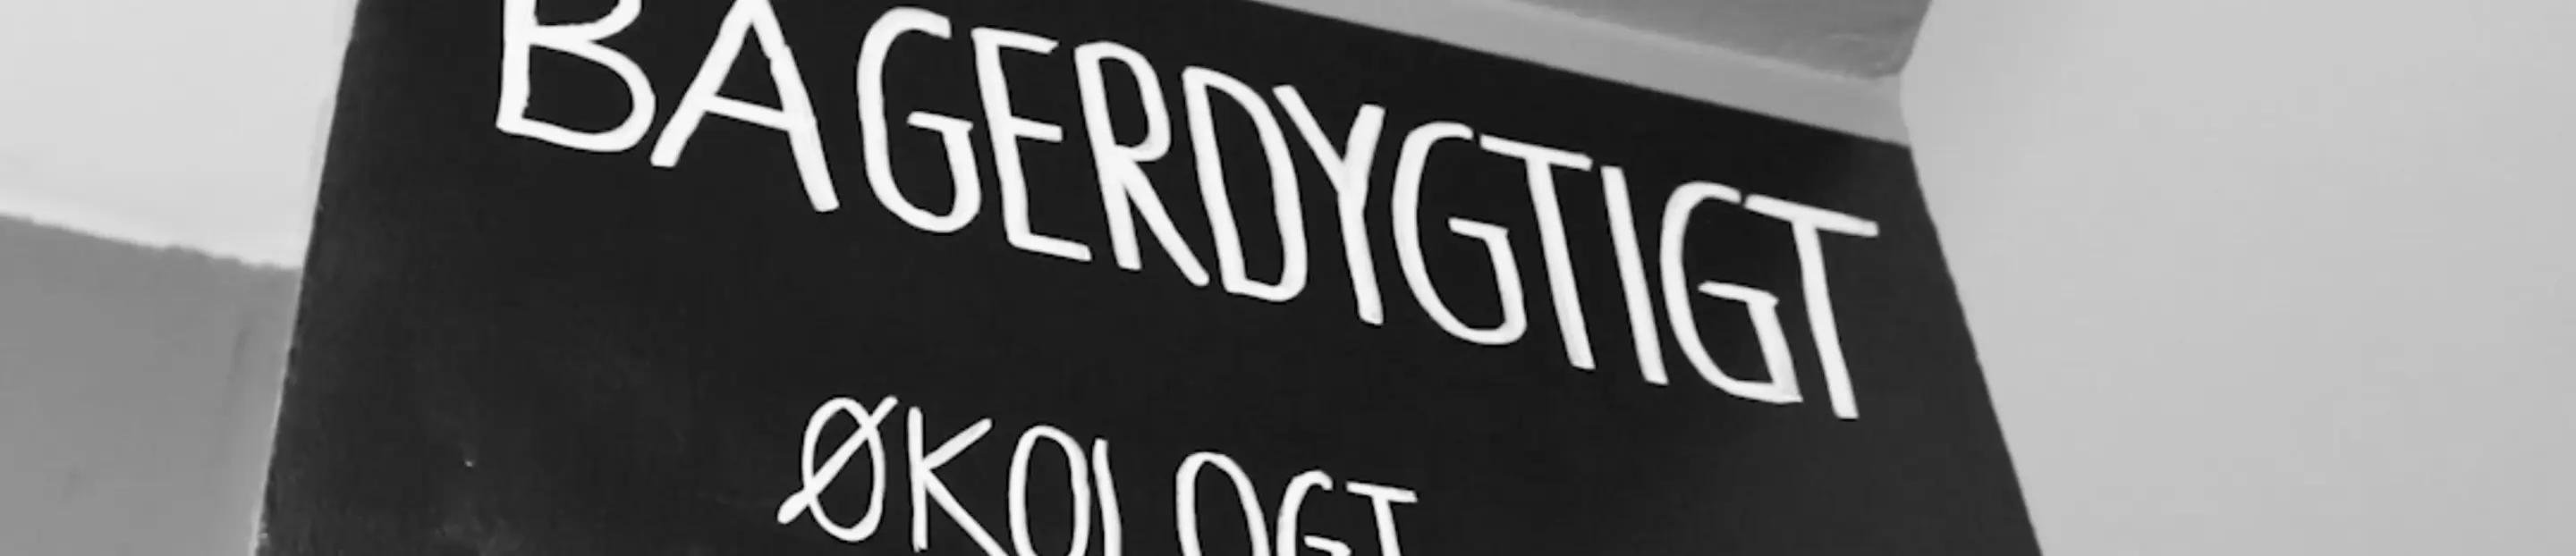 BAGERDYGTIGT
ØKOLOGI